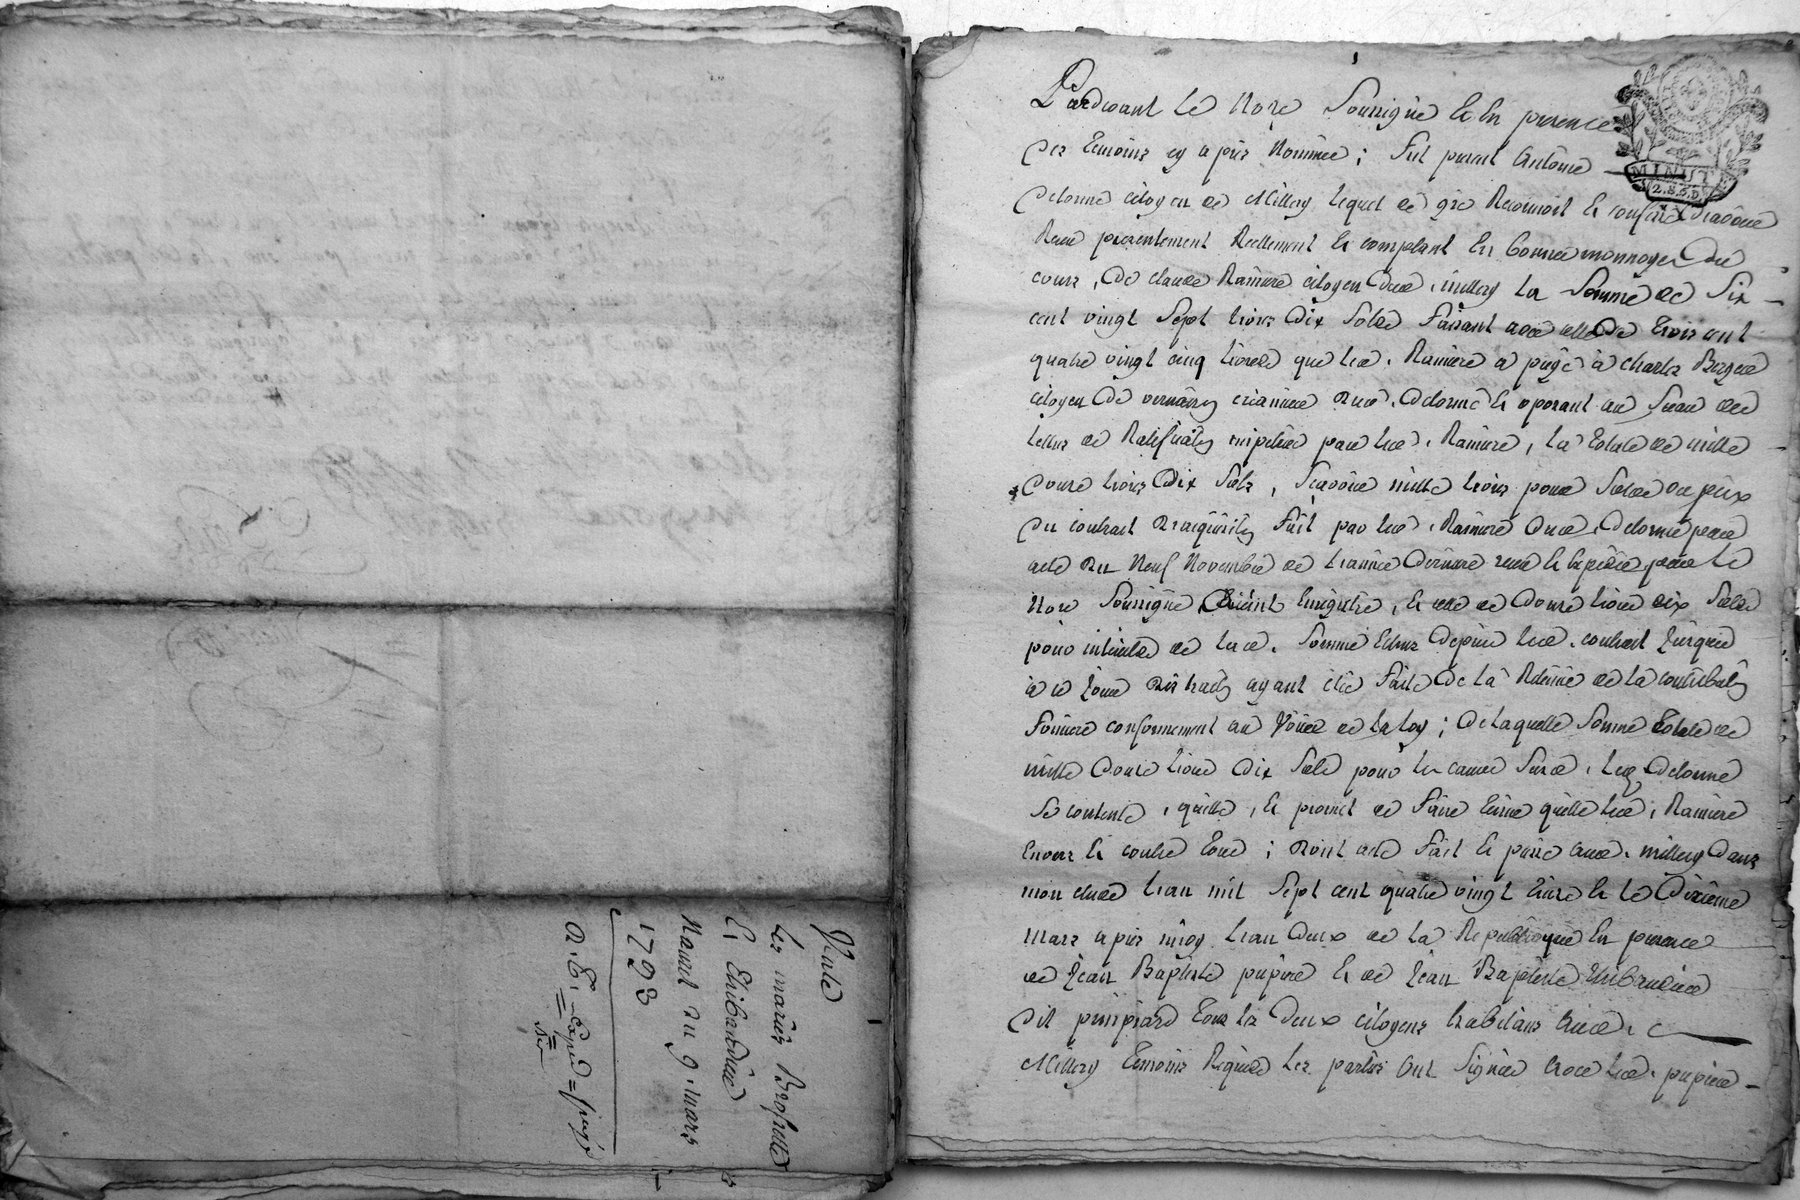 Vente
Les mariés Brossette
Et Thibaudier
Naurel du 9. mars
1793
Pardevant le No.re Soussigné Et En presence
MINUTE
2.S.6.D.
Des temoins cy apres Nommés ; fut present Antoine
Delorme citoyen de Millery lequel de gré Reconnoit Et confesse d'avoir
Receu presentement Reellement Et comptant En bonnes monnoyes du
cours, de claude Ramiere citoyen dud. millery La Somme de Six
cent vingt Sept livres dix Sols Faisant avec celle de trois cent
quatre vingt cinq livres que led. Ramiere a payé à charles Berger
citoyen de vernaison creancier dud. Delorme Et oposant au Sceau des
lettres de Ratification impetrées par led. Ramiere, la totale de mille
douze livres dix Sols, Scavoir mille livres pour Solde du prix
du contrat d'acquisition fait par led. Ramiere dud. Delorme par
acte du Neuf Novembre de l'année derniere receu Et expedié par le
No.re Soussigné, Enregistré, Et celle de douze livres dix Sols
pour interets de lad. Somme Echus depuis led. contrat Jusques
à ce Jour distraction ayant été faite de la Retenue de la contribution
fonciere conformement au vœu de la loy ; De laquelle Somme totale de
mille douze livres dix Sols pour les causes Susd. led. Delorme
Se contente, quitte, Et promet de faire tenir quitte led. Ramiere
Envers Et contre tous ; Dont acte fait Et passé aud. millery dans
mon etude l'an mil Sept cent quatre vingt treize Et le dixieme
mars apres midy l'an deux de la Republique En presence
de Jean Baptiste pupier Et de Jean Baptiste Thibaudier
dit pimpiard tous les deux citoyens habitans aud.
Millery temoins Requis Les parties ont Signé avec led. pupier